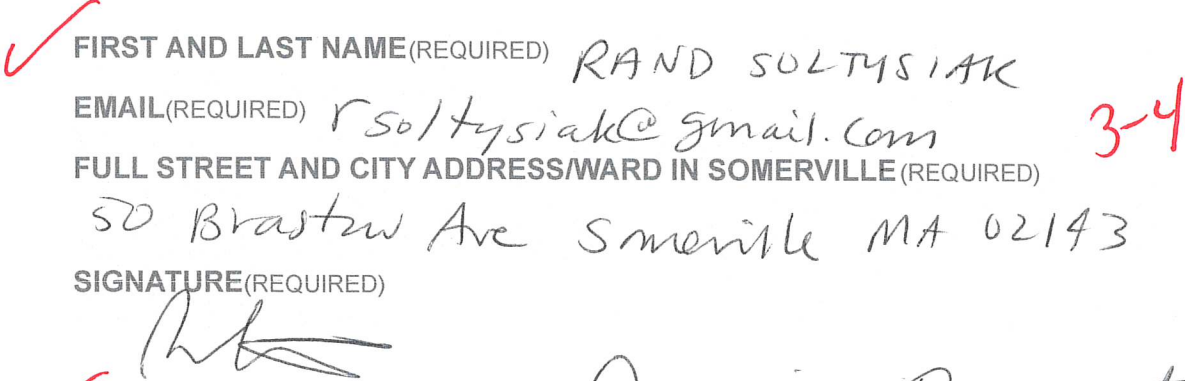 FIRST AND LAST NAME(REQUIRED) RAND SOLTYSIAK
EMAIL(REQUIRED) rsoltysiak@gmail.com
3-4
FULL STREET AND CITY ADDRESS/WARD IN SOMERVILLE(REQUIRED)
50 Brastow Ave Somerville MA 02143
SIGNATURE(REQUIRED)